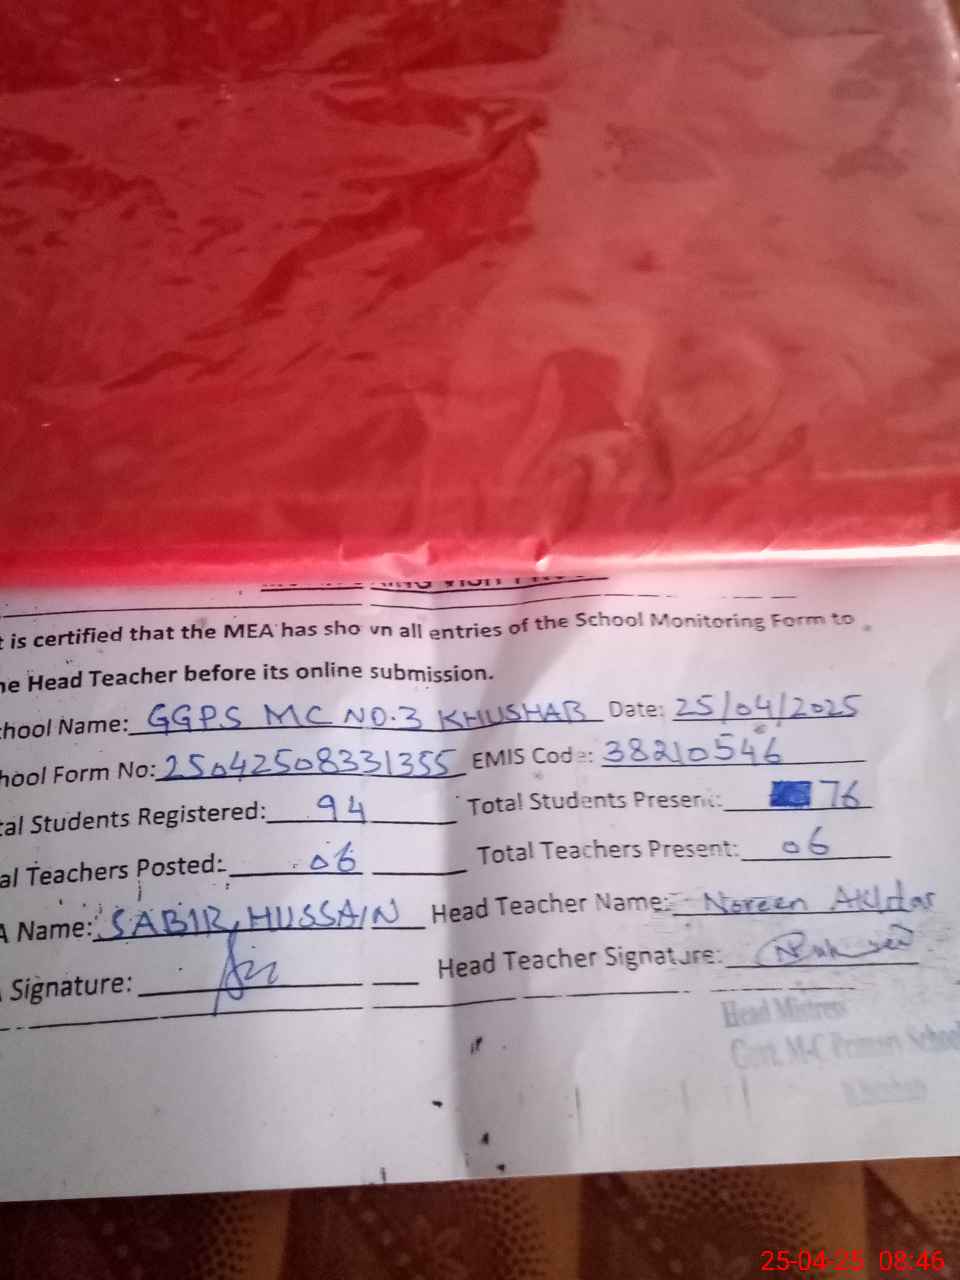 is certified that the MEA has sho vn all entries of the School Monitoring Form to
he Head Teacher before its online submission.
hool Name: GGPS MC NO.3 KHUSHAB Date: 25/04/2025
hool Form No: 25042508331355 EMIS Code: 38210546
tal Students Registered: 94 Total Students Present: 76
al Teachers Posted: 06 Total Teachers Present: 06
A Name: SABIR HUSSAIN Head Teacher Name: Noreen Akhtar
Signature: Head Teacher Signature:
Head Mistress
Govt. M-C Primary School
25-04-25 08:46